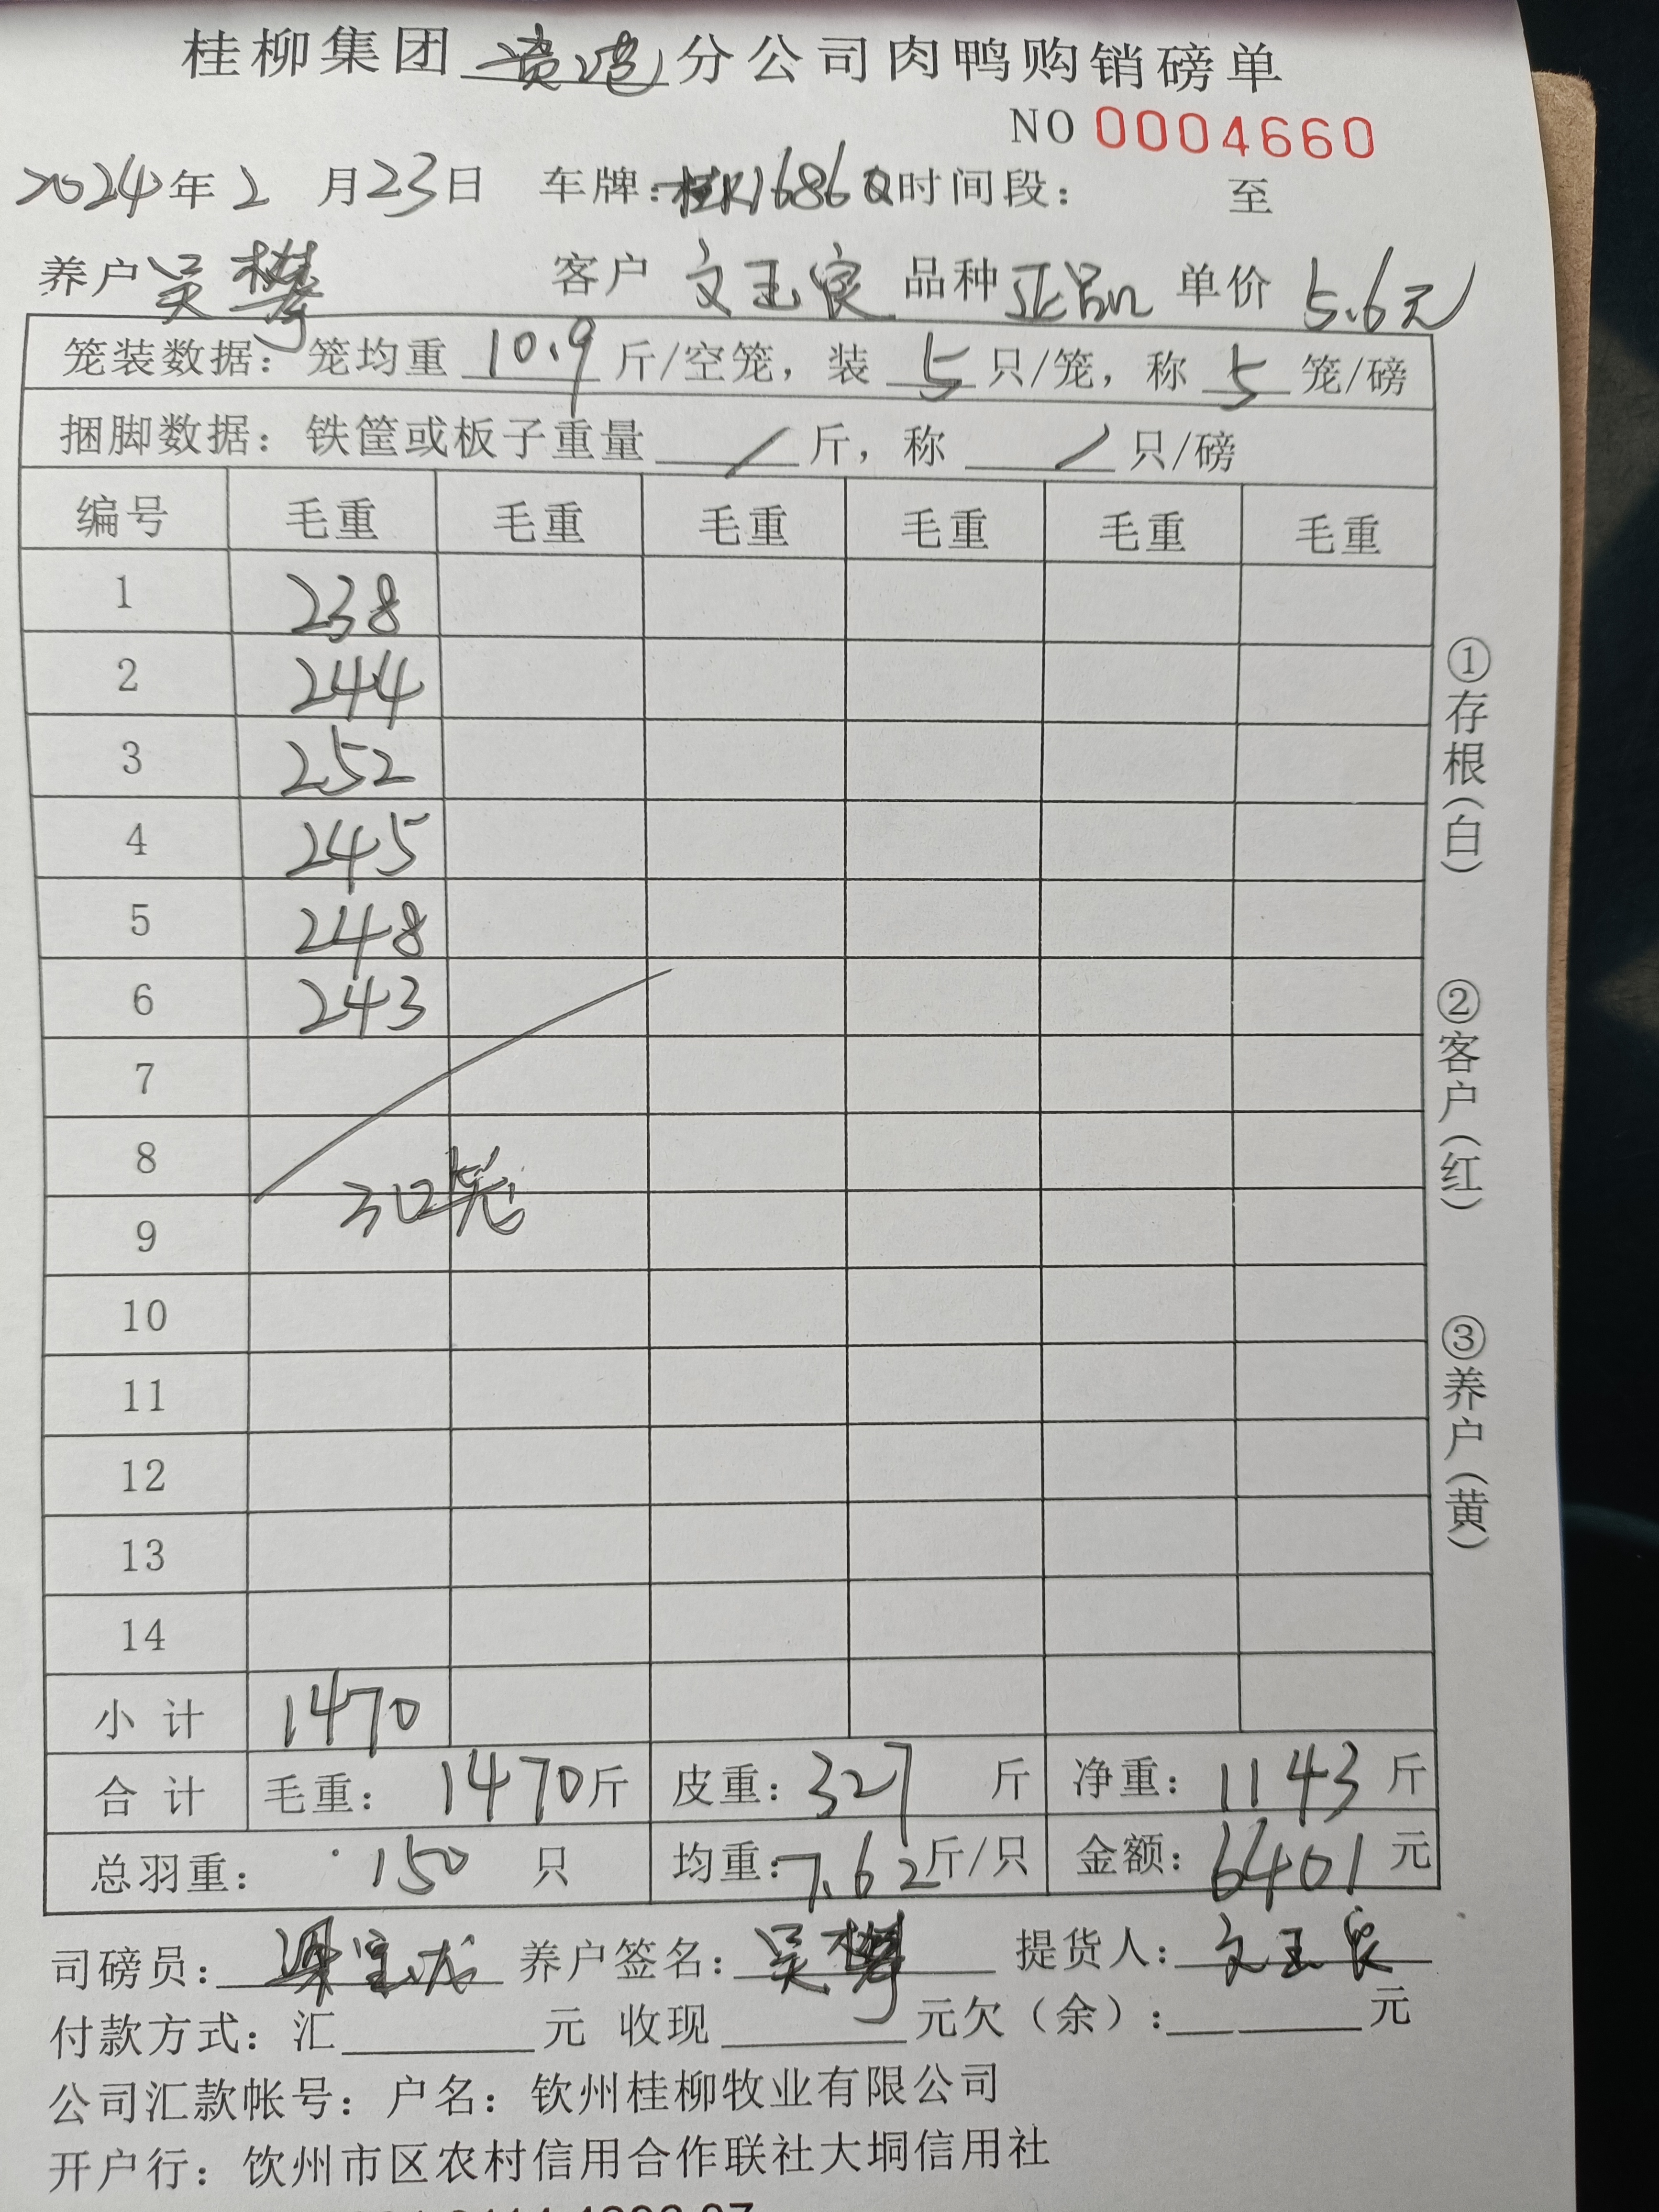 桂柳集团贵港分公司肉鸭购销磅单
NO 0004660
2024年2月23日 车牌:桂K1686Q时间段: 至
养户吴攀 客户 文玉良 品种 正品 单价 5.6元
笼装数据:笼均重 10.9 斤/空笼,装 5 只/笼,称 5 笼/磅
捆脚数据:铁筐或板子重量 / 斤,称 / 只/磅
编号 毛重 毛重 毛重 毛重 毛重 毛重
1 238
2 244
3 252
4 245
5 248
6 243
7
8
30笼
9
10
11
12
13
14
小计 1470
合计 毛重: 1470斤 皮重:327 斤 净重:1143斤
总羽重: 150 只 均重:7.62斤/只 金额:6401元
司磅员: 养户签名:吴攀 提货人:文玉良
付款方式:汇______元 收现______元欠(余):______元
公司汇款帐号:户名:钦州桂柳牧业有限公司
开户行:钦州市区农村信用合作联社大垌信用社
①存根(白)
②客户(红)
③养户(黄)